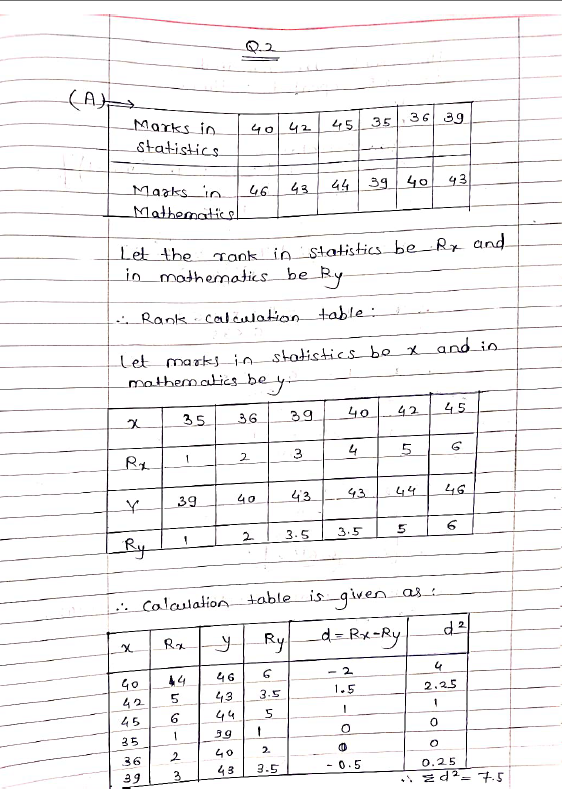 Q.2
(A)→
Marks in statistics | 40 | 42 | 45 | 35 | 36 | 39
Marks in Mathematics | 46 | 43 | 44 | 39 | 40 | 43
Let the rank in statistics be Rx and
in mathematics be Ry
∴ Rank calculation table :
Let marks in statistics be x and in
mathematics be y.
x | 35 | 36 | 39 | 40 | 42 | 45
Rx | 1 | 2 | 3 | 4 | 5 | 6
Y | 39 | 40 | 43 | 43 | 44 | 46
Ry | 1 | 2 | 3.5 | 3.5 | 5 | 6
∴ Calculation table is given as :
x | Rx | y | Ry | d = Rx - Ry | d²
40 | 4 | 46 | 6 | -2 | 4
42 | 5 | 43 | 3.5 | 1.5 | 2.25
45 | 6 | 44 | 5 | 1 | 1
35 | 1 | 39 | 1 | 0 | 0
36 | 2 | 40 | 2 | 0 | 0
39 | 3 | 43 | 3.5 | -0.5 | 0.25
∴ Σd² = 7.5